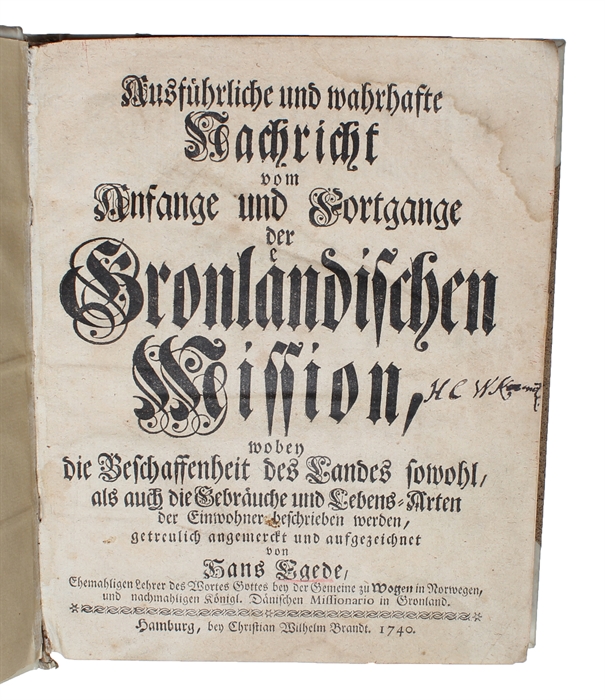 Ausführliche und wahrhafte
Nachricht
vom
Anfange und Fortgange
der
Grönländischen
Mission,
H C W
wobey
die Beschaffenheit des Landes sowohl,
als auch die Gebräuche und Lebens-Arten
der Einwohner beschrieben werden,
getreulich angemerckt und aufgezeichnet
von
Hans Egede,
Ehemahligen Lehrer des Wortes Gottes bey der Gemeine zu Wogen in Norwegen,
und nachmahligen Königl. Dänischen Missionario in Grönland.
Hamburg, bey Christian Wilhelm Brandt. 1740.